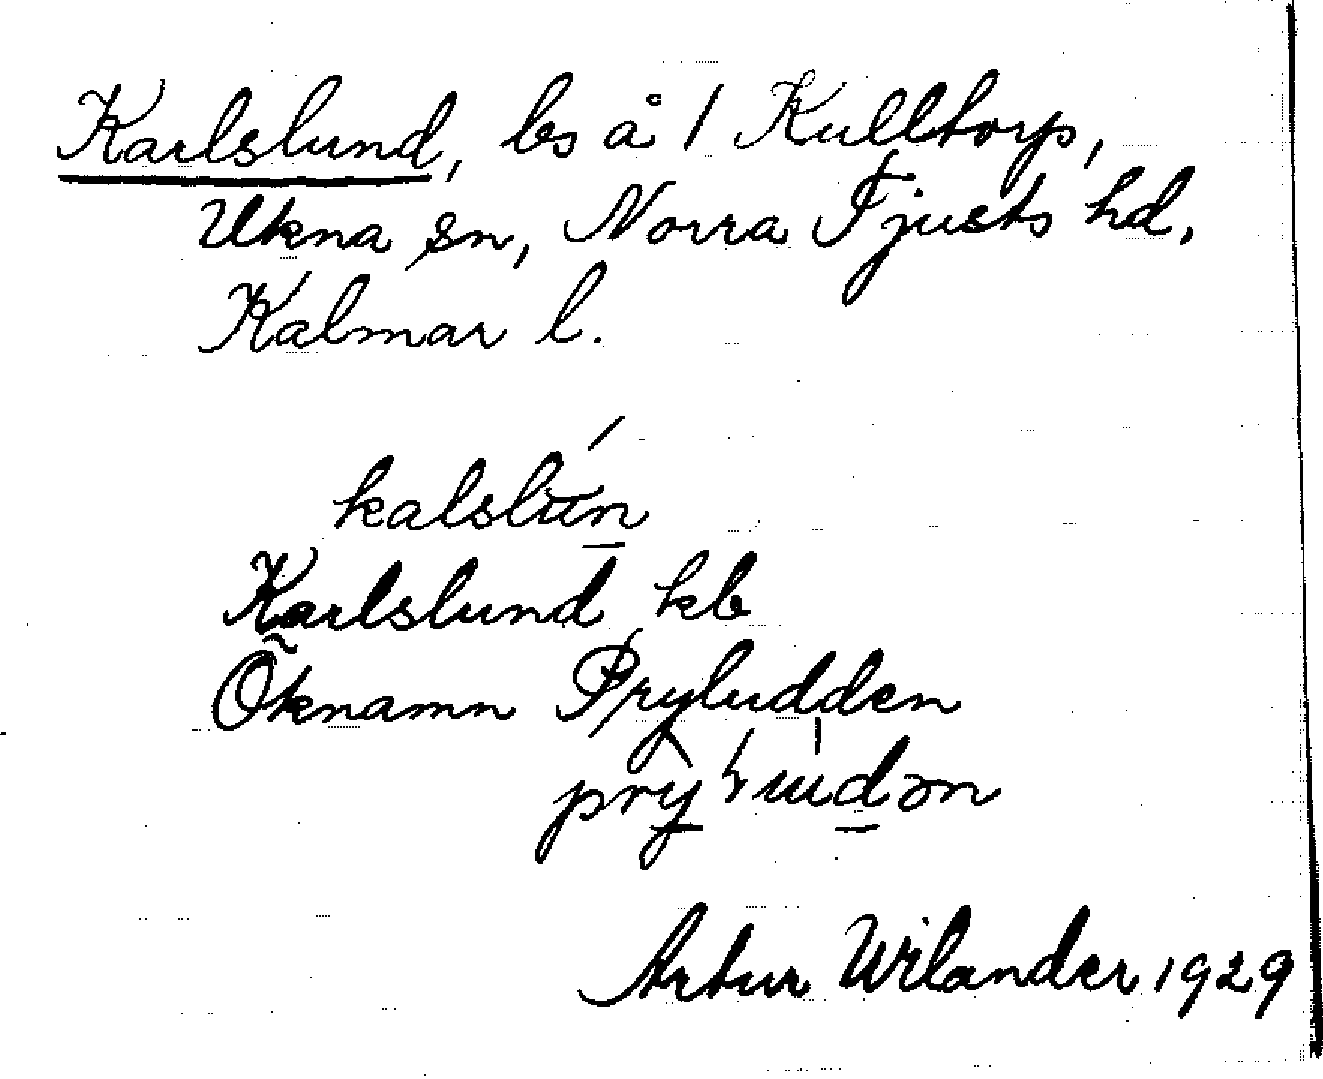 Karlslund, ls å 1 Kulltorp,
Ukna sn, Norra Tjusts hd,
Kalmar l.
kalslun
Karlslund kb
Öknamn Pryludden
Artur Wilander 1929